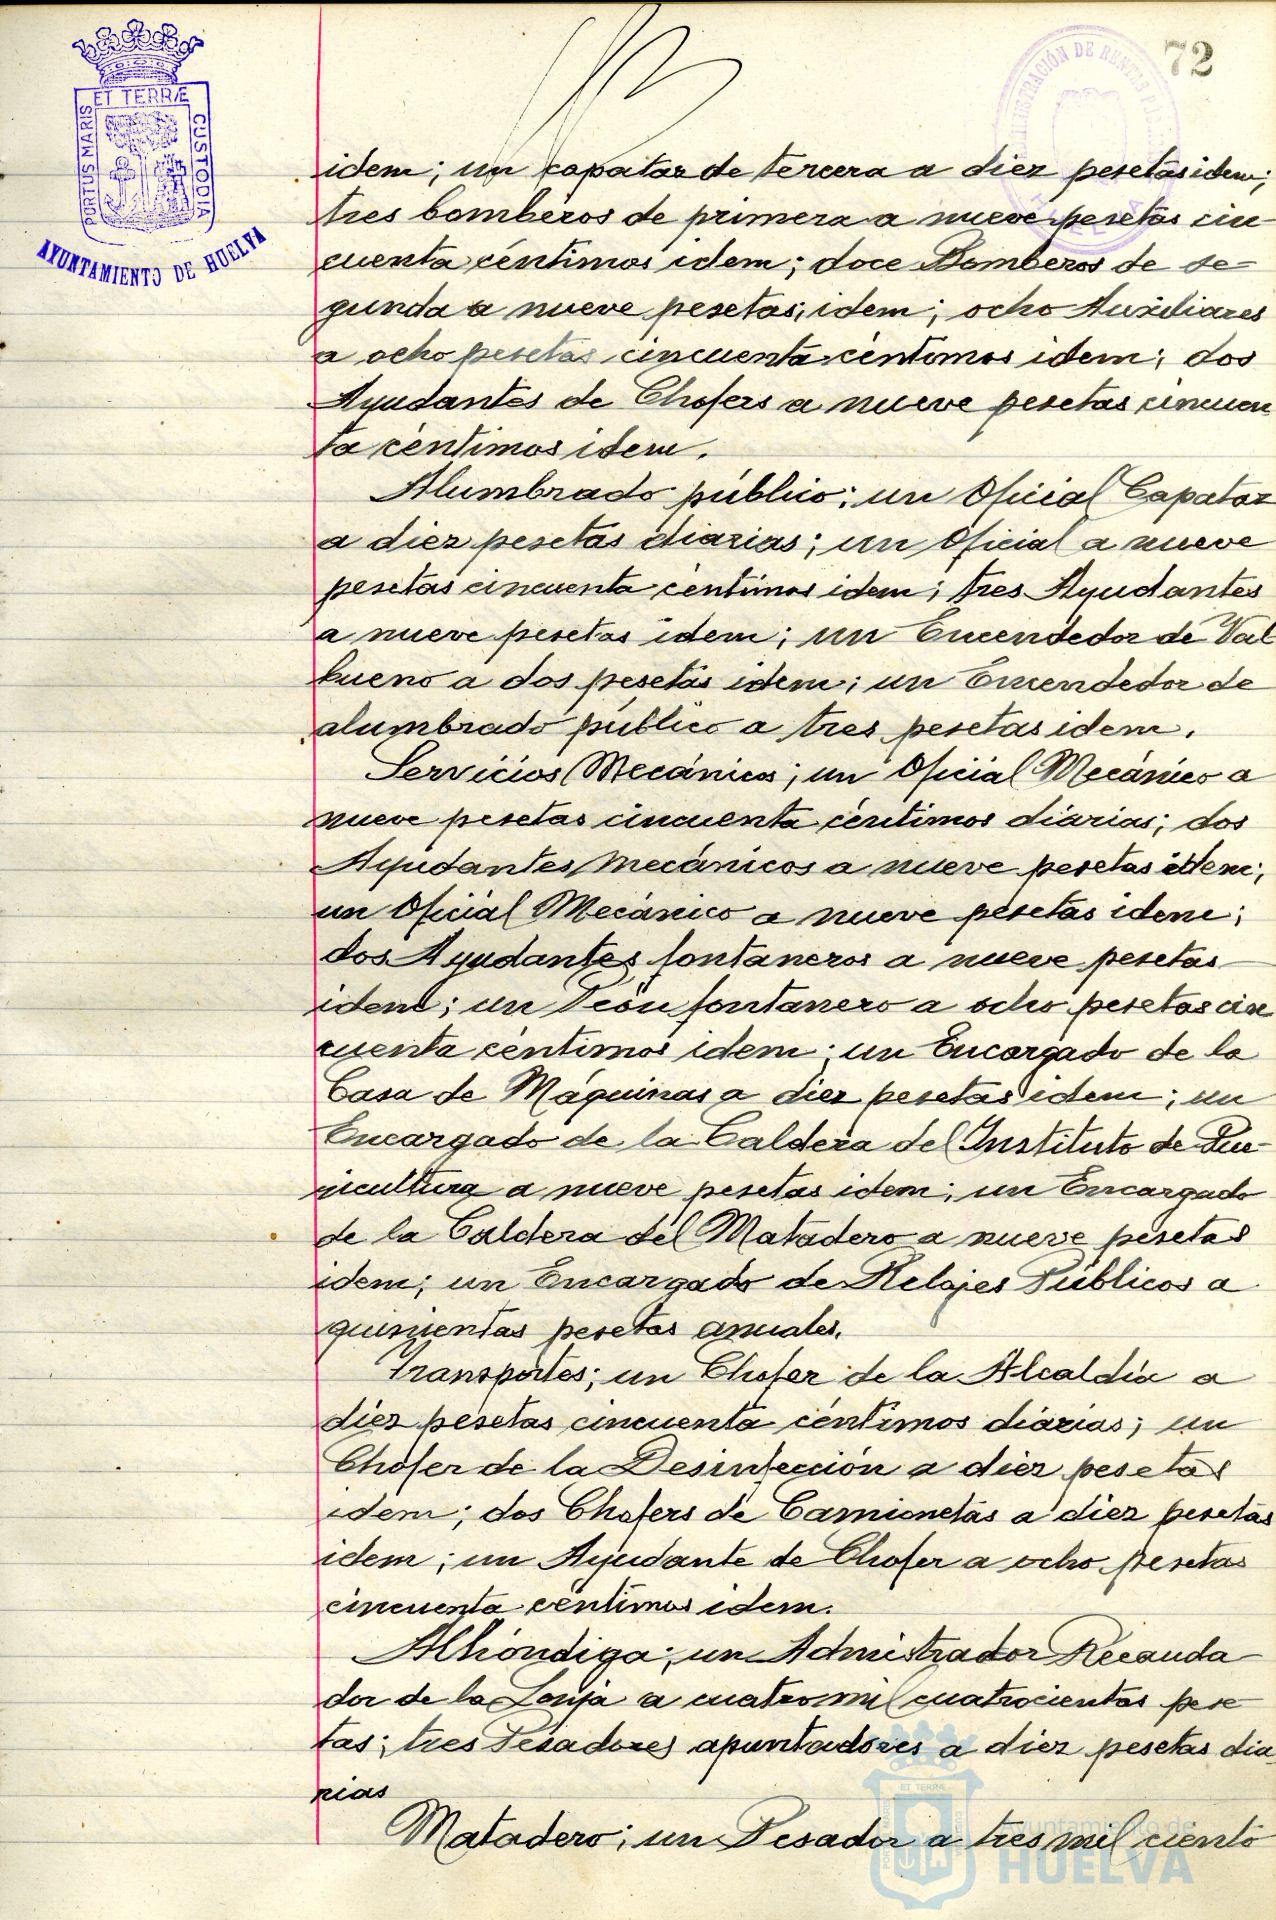 72
ET TERRÆ
PORTUS MARIS
CUSTODIA
AYUNTAMIENTO DE HUELVA
idem; un capataz de tercera a diez pesetas idem;
tres bomberos de primera a nueve pesetas cin-
cuenta céntimos idem; doce Bomberos de se-
gunda a nueve pesetas, idem; ocho Auxiliares
a ocho pesetas cincuenta céntimos idem; dos
Ayudantes de Chofers a nueve pesetas cincuen
ta céntimos idem.
Alumbrado público; un Oficial Capataz
a diez pesetas diarias; un Oficial a nueve
pesetas cincuenta céntimos idem; tres Ayudantes
a nueve pesetas idem; un Encendedor de Val
bueno a dos pesetas idem; un Encendedor de
alumbrado público a tres pesetas idem.
Servicios Mecánicos; un Oficial Mecánico a
nueve pesetas cincuenta céntimos diarias; dos
Ayudantes Mecánicos a nueve pesetas idem;
un Oficial Mecánico a nueve pesetas idem;
dos Ayudantes fontaneros a nueve pesetas
idem; un Peón fontanero a ocho pesetas cin
cuenta céntimos idem; un Encargado de la
Casa de Máquinas a diez pesetas idem; un
Encargado de la Caldera del Instituto de Pue-
ricultura a nueve pesetas idem; un Encargado
de la Caldera del Matadero a nueve pesetas
idem; un Encargado de Relojes Públicos a
quinientas pesetas anuales.
Transportes; un Chofer de la Alcaldía a
diez pesetas cincuenta céntimos diarias; un
Chofer de la Desinfección a diez pesetas
idem; dos Chofers de Camionetas a diez pesetas
idem; un Ayudante de Chofer a ocho pesetas
cincuenta céntimos idem.
Alhóndiga; un Admistrador Recauda-
dor de la Lonja a cuatro mil cuatrocientas pese-
tas; tres Pesadores apuntadores a diez pesetas dia-
rias
Matadero; un Pesador a tres mil ciento
Ayuntamiento de
HUELVA